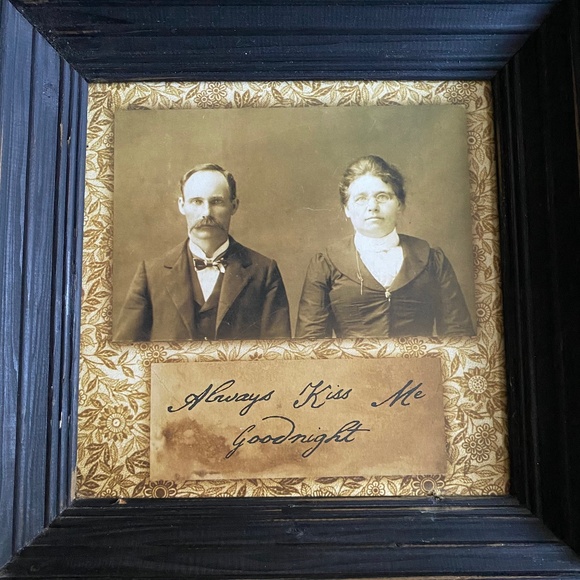 Always Kiss Me
Goodnight